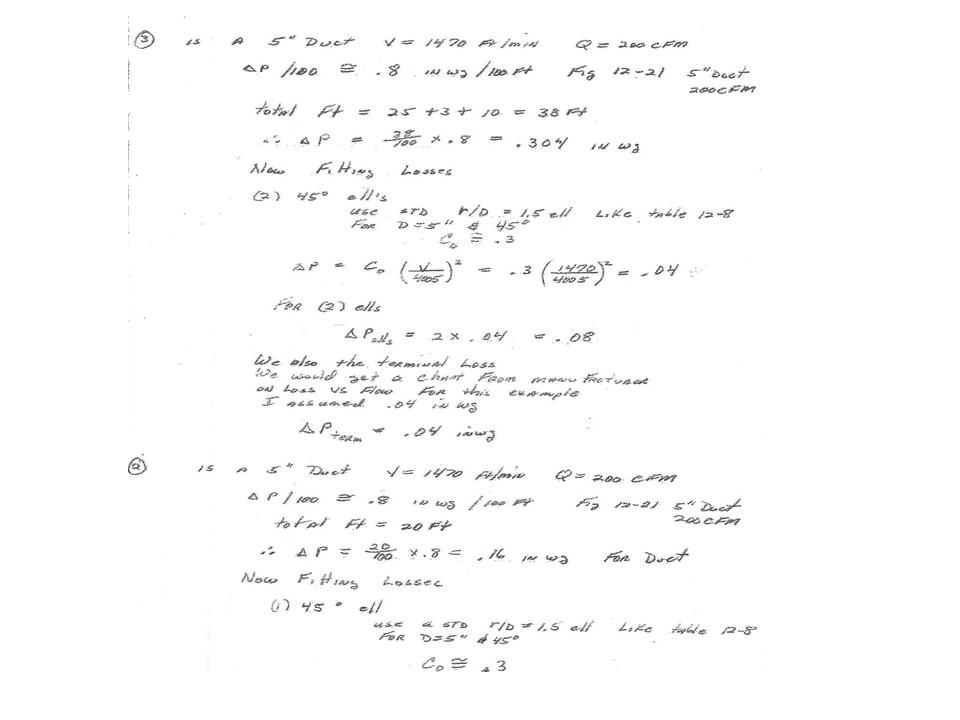 ③ is A 5" Duct V = 1470 Ft/min Q = 200 CFM
ΔP/100 ≅ .8 in wg/100 Ft Fig 12-21 5" Duct
200 CFM
total Ft = 25 + 3 + 10 = 38 Ft
∴ ΔP = 38/100 x .8 = .304 in wg
Now Fitting Losses
(2) 45° ell's
use STD r/D = 1.5 ell Like table 12-8
For D = 5" & 45°
C₀ ≅ .3
ΔP = C₀ (V/4005)² = .3 (1470/4005)² = .04
For (2) ells
ΔP ells = 2 x .04 = .08
We also the terminal Loss
We would get a chart From manufacturer
on Loss vs Flow For this example
I assumed .04 in wg
ΔP term = .04 in wg
② is A 5" Duct V = 1470 Ft/min Q = 200 CFM
ΔP/100 ≅ .8 in wg/100 Ft Fig 12-21 5" Duct
200 CFM
total Ft = 20 Ft
∴ ΔP = 20/100 x .8 = .16 in wg For Duct
Now Fitting Losses
(1) 45° ell
use a STD r/D = 1.5 ell Like table 12-8
For D=5" & 45°
C₀ ≅ .3